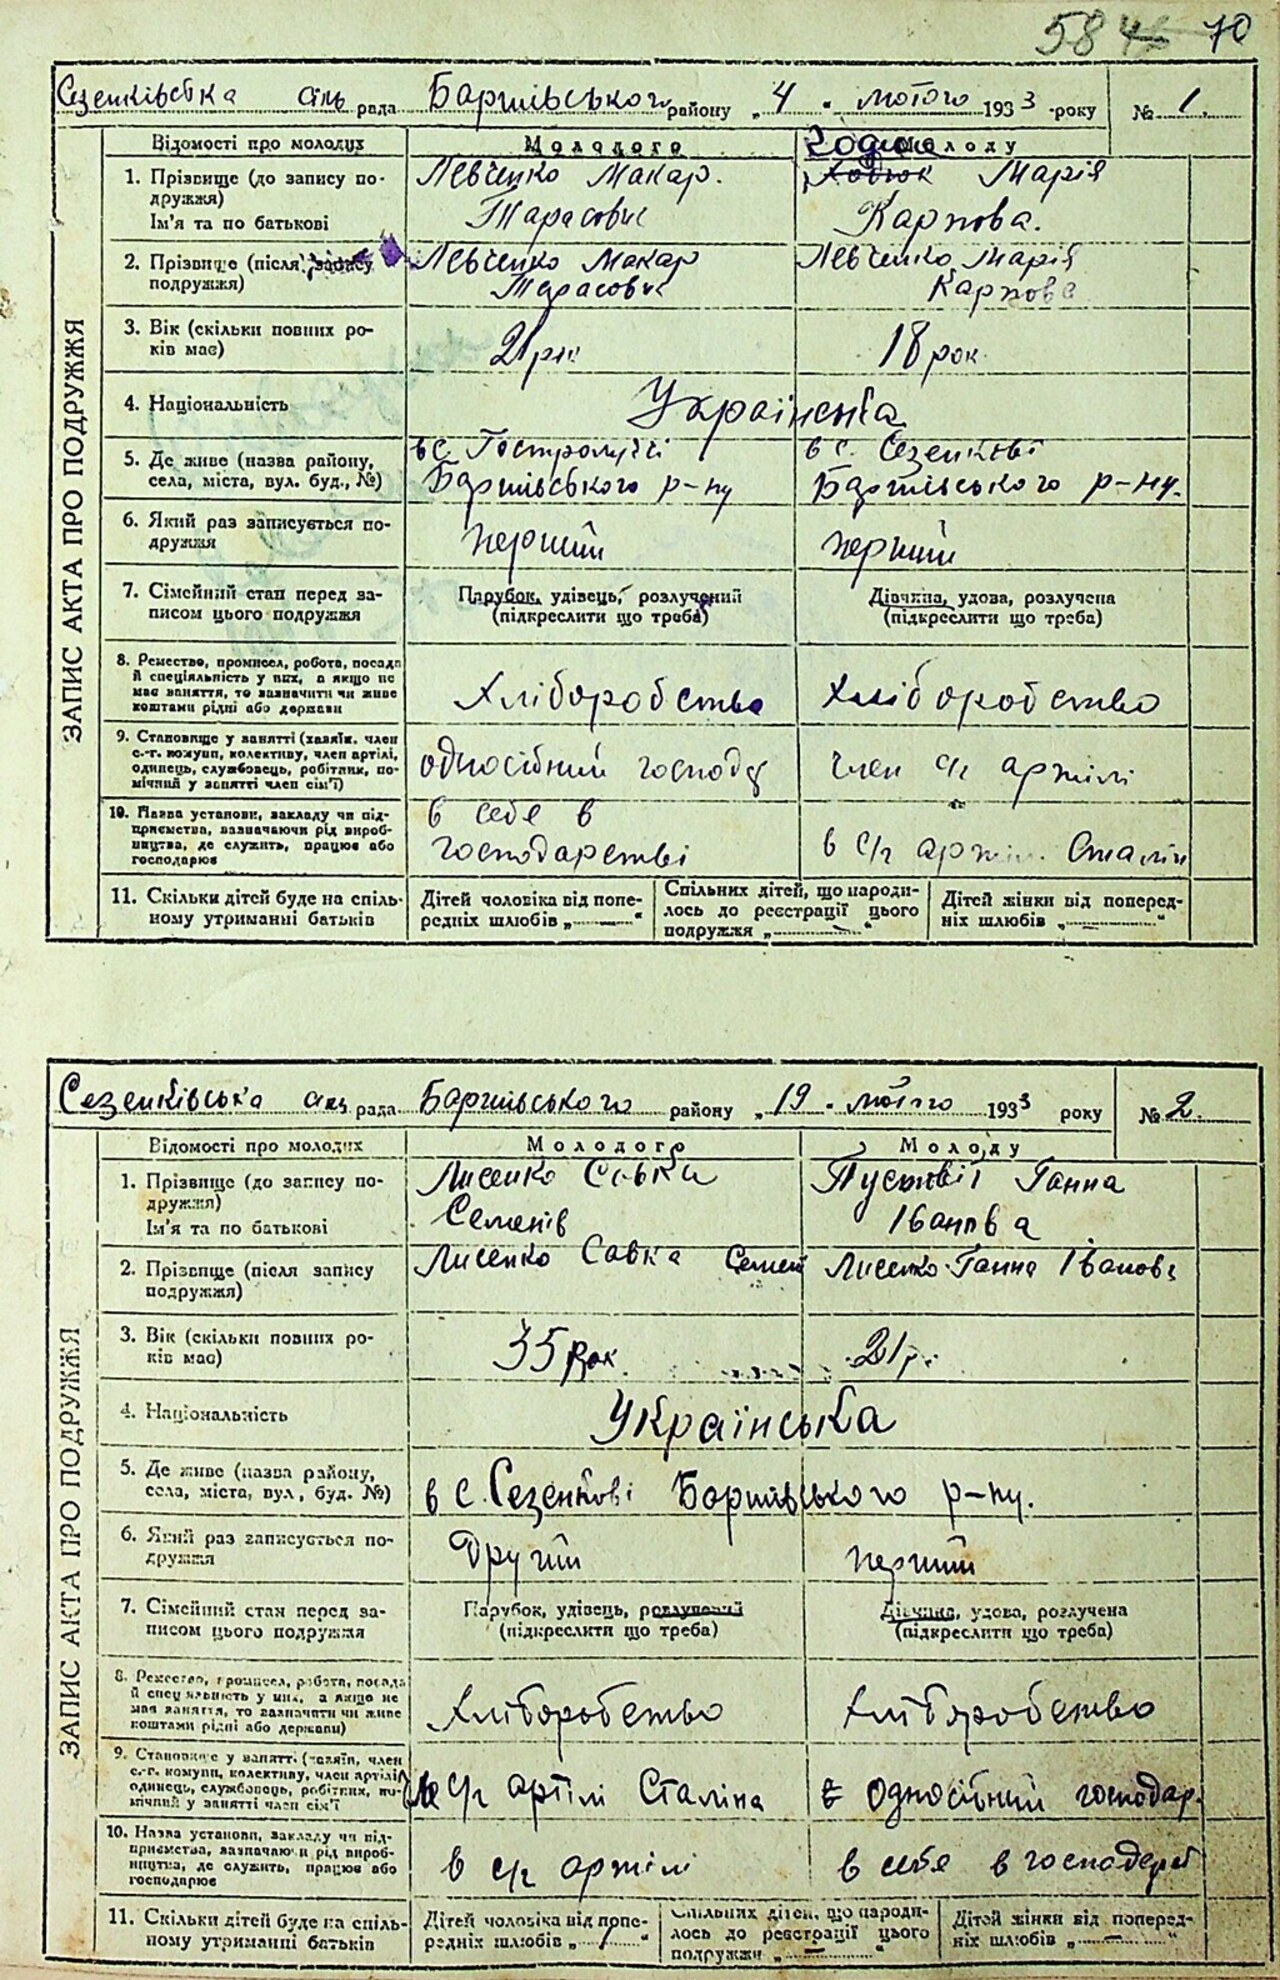 584 70
Сезенківська сіль рада Баришівського району „4“ лютого 1933 року № 1.
ЗАПИС АКТА ПРО ПОДРУЖЖЯ
Відомості про молодих
Молодого
Молоду
1. Прізвище (до запису по-
дружжя)
Ім'я та по батькові
Левченко Макар.
Тарасович
Марія
Карпова.
2. Прізвище (після запису
подружжя)
Левченко Макар
Тарасович
Левченко Марія
Карпова
3. Вік (скільки повних ро-
ків має)
21 рік
18 рок
4. Національність
Українська
5. Де живе (назва району,
села, міста, вул. буд., №)
в с. Гостролуччі
Баришівського р-ну
в с. Сезенкові
Баришівського р-ну.
6. Який раз записується по-
дружжя
перший
перший
7. Сімейний стан перед за-
писом цього подружжя
Парубок, удівець, розлучений
(підкреслити що треба)
Дівчина, удова, розлучена
(підкреслити що треба)
8. Ремество, промисел, робота, посада
й спеціяльність у них, а якщо не
має заняття, то зазначити чи живе
коштами рідні або держави
Хліборобство
Хліборобство
9. Становище у занятті (хазяїн, член
с.-г. комуни, колективу, член артілі,
одинець, службовець, робітник, по-
мічний у занятті член сім'ї)
односібний господар
член с/г артілі
10. Назва установи, закладу чи під-
приємства, зазначаючи рід вироб-
ництва, де служить, працює або
господарює
в себе в
господарстві
в с/г артіл. Сталін
11. Скільки дітей буде на спіль-
ному утриманні батьків
Дітей чоловіка від попе-
редніх шлюбів „—“
Спільних дітей, що народи-
лось до реєстрації цього
подружжя „—“
Дітей жінки від поперед-
ніх шлюбів „—“
Сезенківська сіль рада Баришівського району „19“ лютого 1933 року № 2.
ЗАПИС АКТА ПРО ПОДРУЖЖЯ
Відомості про молодих
Молодого
Молоду
1. Прізвище (до запису по-
дружжя)
Ім'я та по батькові
Лисенко Савка
Семенів
Пустовіт Ганна
Іванова
2. Прізвище (після запису
подружжя)
Лисенко Савка Семен
Лисенко Ганна Іванова
3. Вік (скільки повних ро-
ків має)
35 рок.
21 р.
4. Національність
Українська
5. Де живе (назва району,
села, міста, вул., буд. №)
в с. Сезенкові Баришівського р-ну.
6. Який раз записується по-
дружжя
Другий
перший
7. Сімейний стан перед за-
писом цього подружжя
Парубок, удівець, розлучений
(підкреслити що треба)
Дівчина, удова, розлучена
(підкреслити що треба)
8. Ремество, промисел, робота, посада
й спеціяльність у них, а якщо не
має заняття, то зазначити чи живе
коштами рідні або держави)
Хліборобство
Хліборобство
9. Становище у занятті (хазяїн, член
с.-г. комуни, колективу, член артілі,
одинець, службовець, робітник, по-
мічний у занятті член сім'ї
с/г артілі Сталіна
односібний господар.
10. Назва установи, закладу чи під-
приємства, зазначаючи рід вироб-
ництва, де служить, працює або
господарює
в с/г артілі
в себе в господарст
11. Скільки дітей буде на спіль-
ному утриманні батьків
Дітей чоловіка від попе-
редніх шлюбів „ “
Спільних дітей, що народи-
лось до реєстрації цього
подружжя „—“
Дітей жінки від поперед-
ніх шлюбів „—“